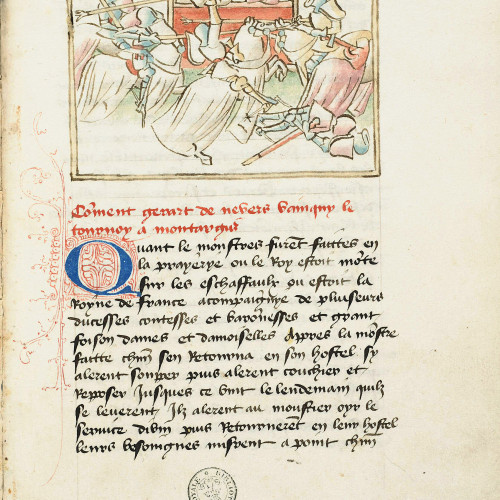 Cõment gerart de nevers vainquy le
tournoy a montargis
Quant le monstres furẽt faittes en
la prayerye ou le Roy estoit mõte
sur les eschaffaulx ou estoit la
Royne de France acompaignye de pluiseurs
ducesses contesses et barõnesses et grant
foison dames et damoiselles Appres la mõstre
faitte chũn sen Retourna en son hostel sy
alerent souper puis alerent couchier et
Reposer Jusques ce vint le lendemain quilz
se leverent Ilz alerent au moustier oyr le
service divin puis Retournerẽt en leur hostel
leurs besoingnes misrent a point chũn